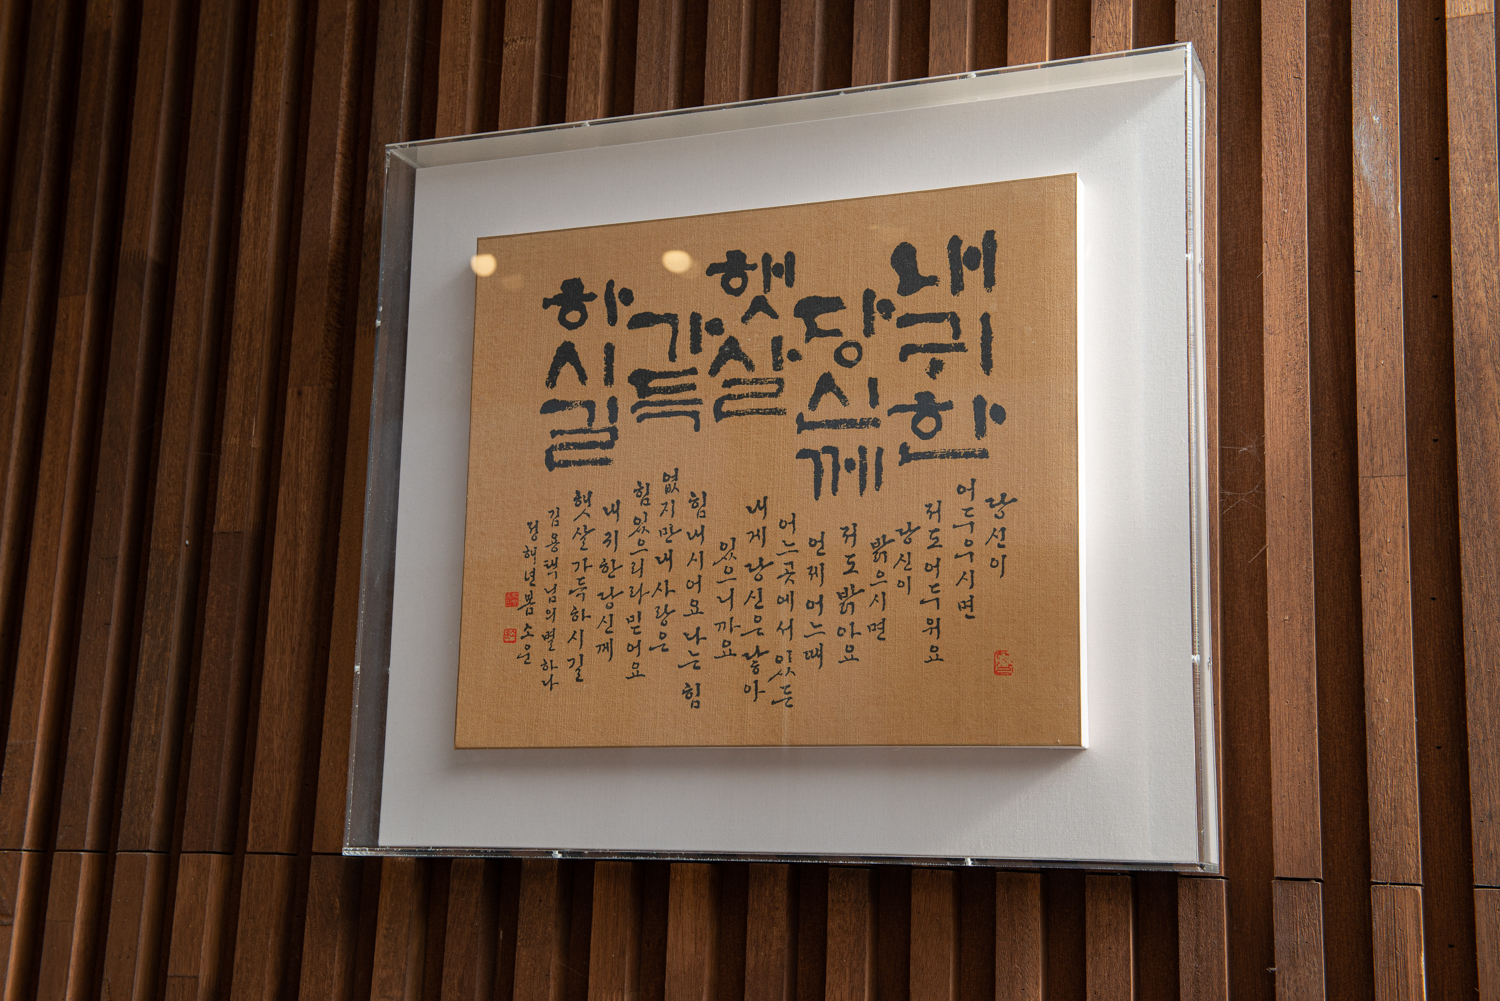 내귀한
당신께
햇살
가득
하시길
당신이
어두우시면
저도어두워요
당신이
밝으시면
저도밝아요
언제어느때
어느곳에서있든
내게당신은닿아
있으니까요
힘내시어요나는힘
없지만내사랑은
힘있으리라믿어요
내귀한당신께
햇살가득하시길
김용택님의별하나
정해년봄소운